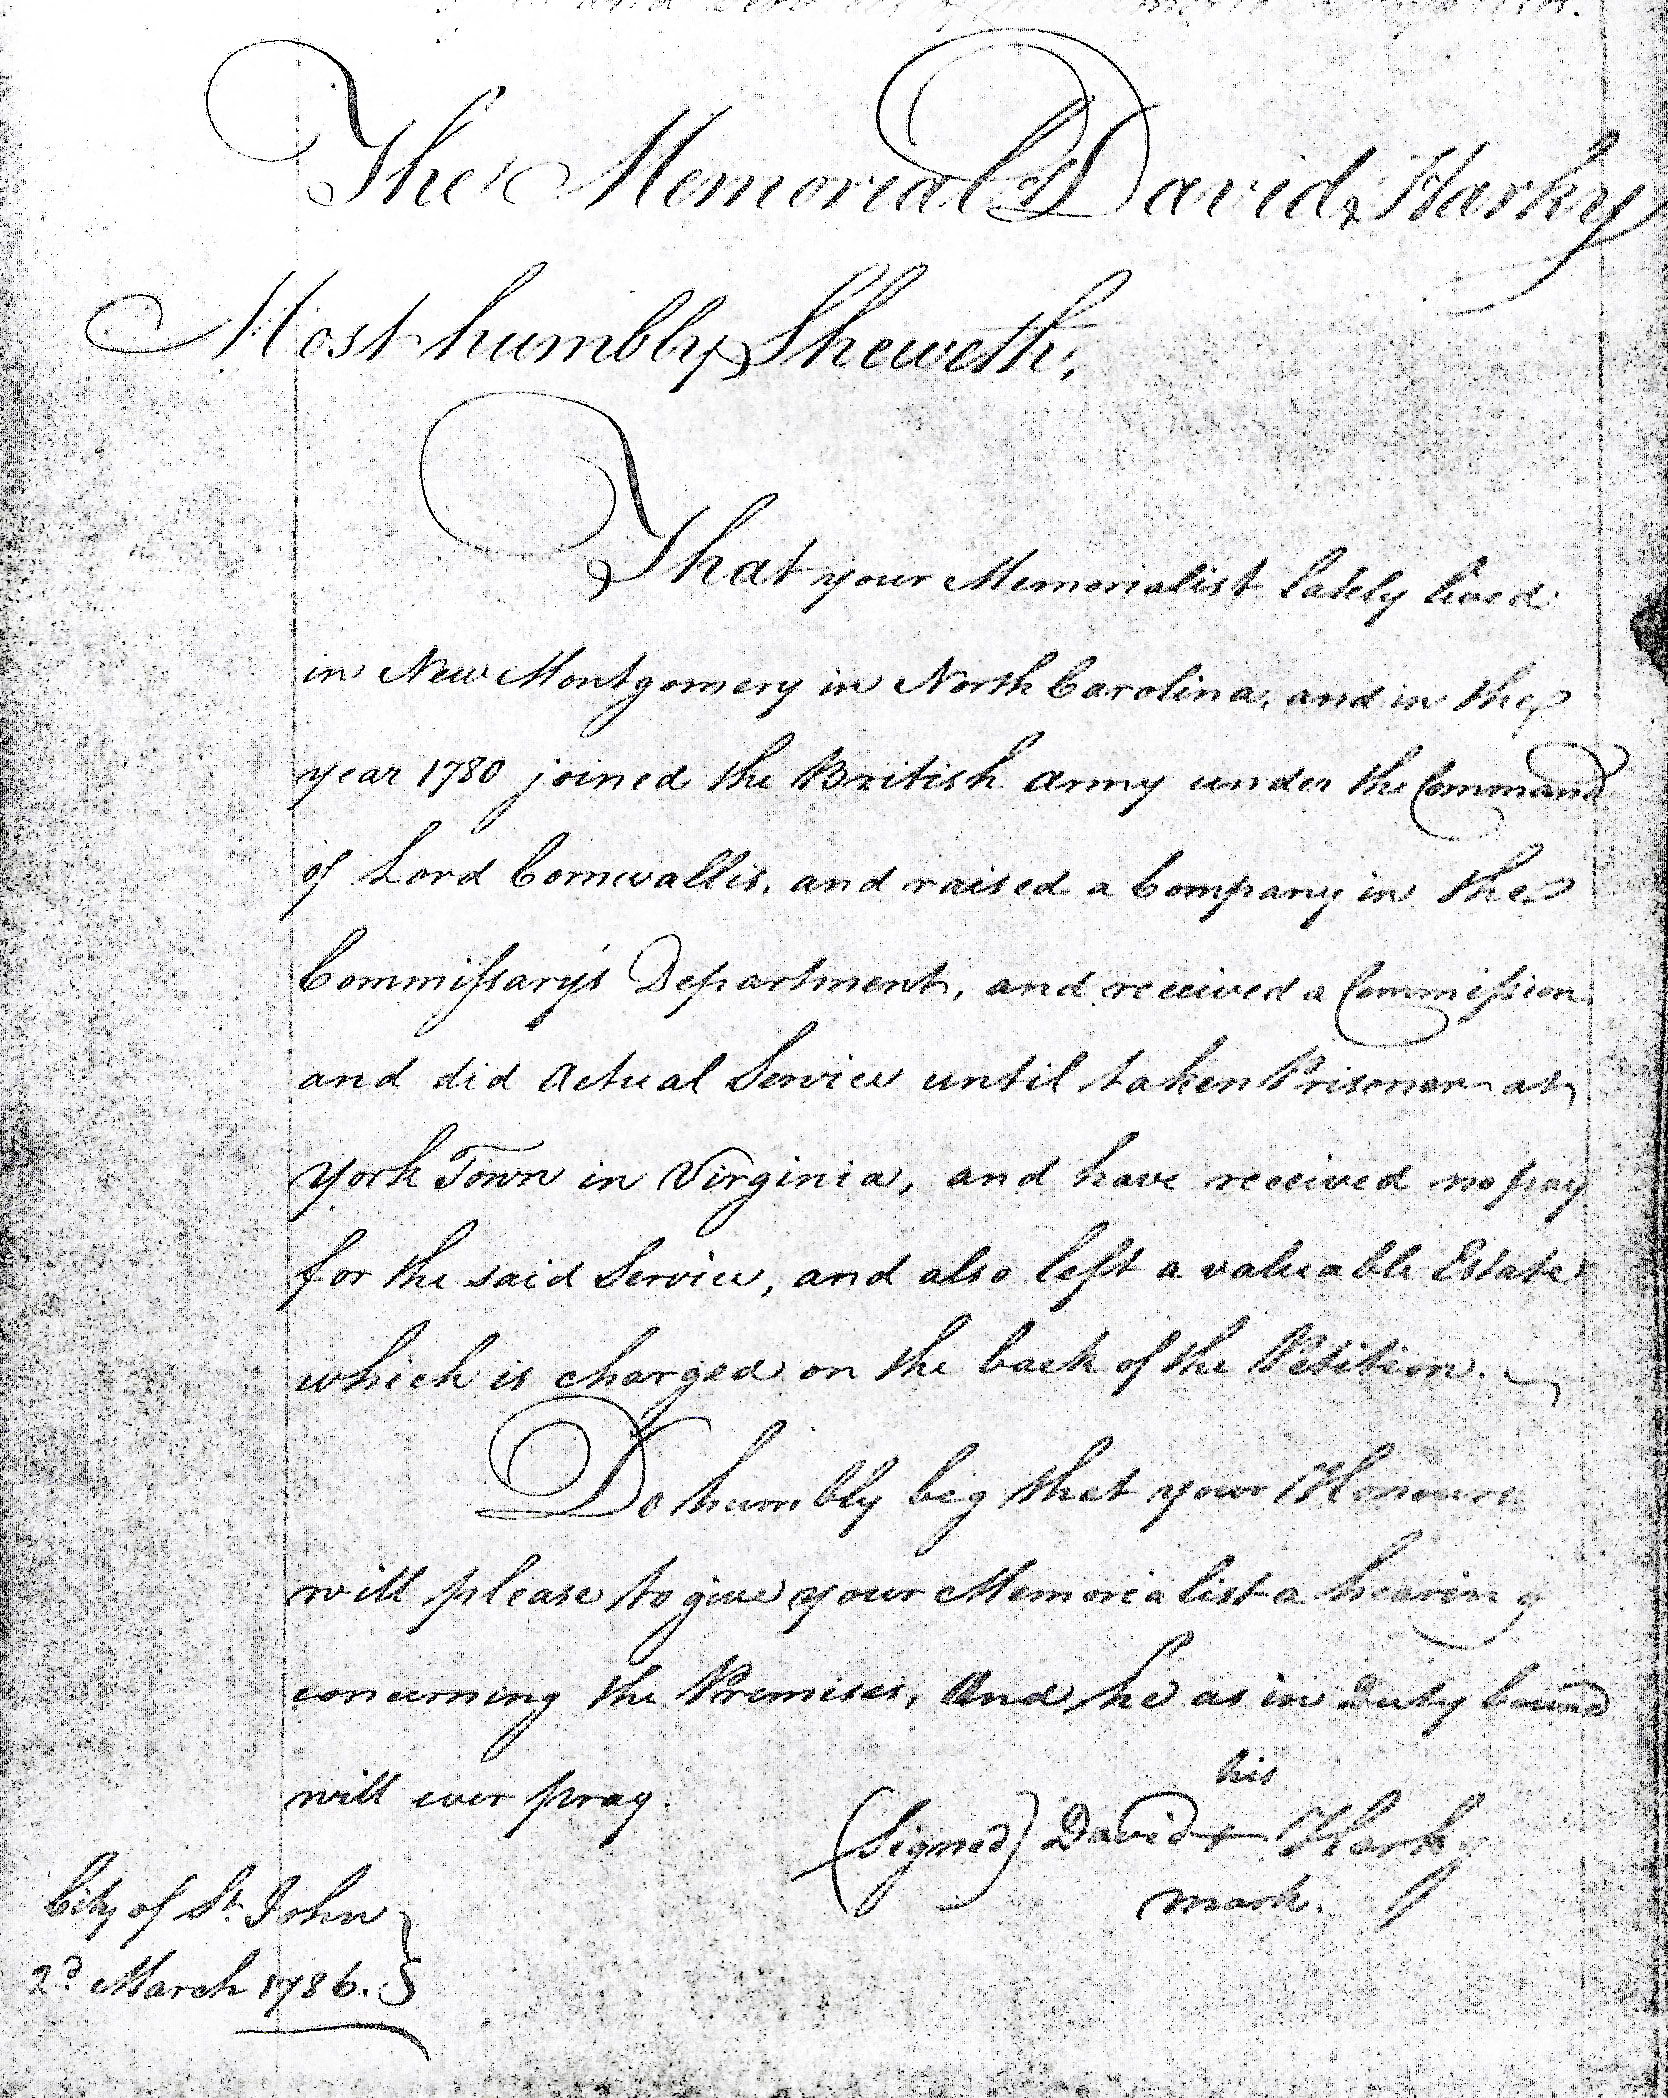 The Memorial of David Harky
Most humbly Sheweth,
That your Memorialist lately lived
in New Montgomery in North Carolina, and in the
year 1780 joined the British Army under the Command
of Lord Cornwallis, and raised a Company in the
Commissary's Department, and received a Commission
and did Actual Service until taken Prisoner at
York Town in Virginia, and have received no pay
for the said Service, and also left a valuable Estate
which is charged on the back of the Petition.
Do humbly beg that your Honours
will please to give your Memorialist a hearing
concerning the Premises, And he as in Duty bound
will ever pray.
his
(Signed) David + Harky
mark.
City of St. John
2d March 1786.